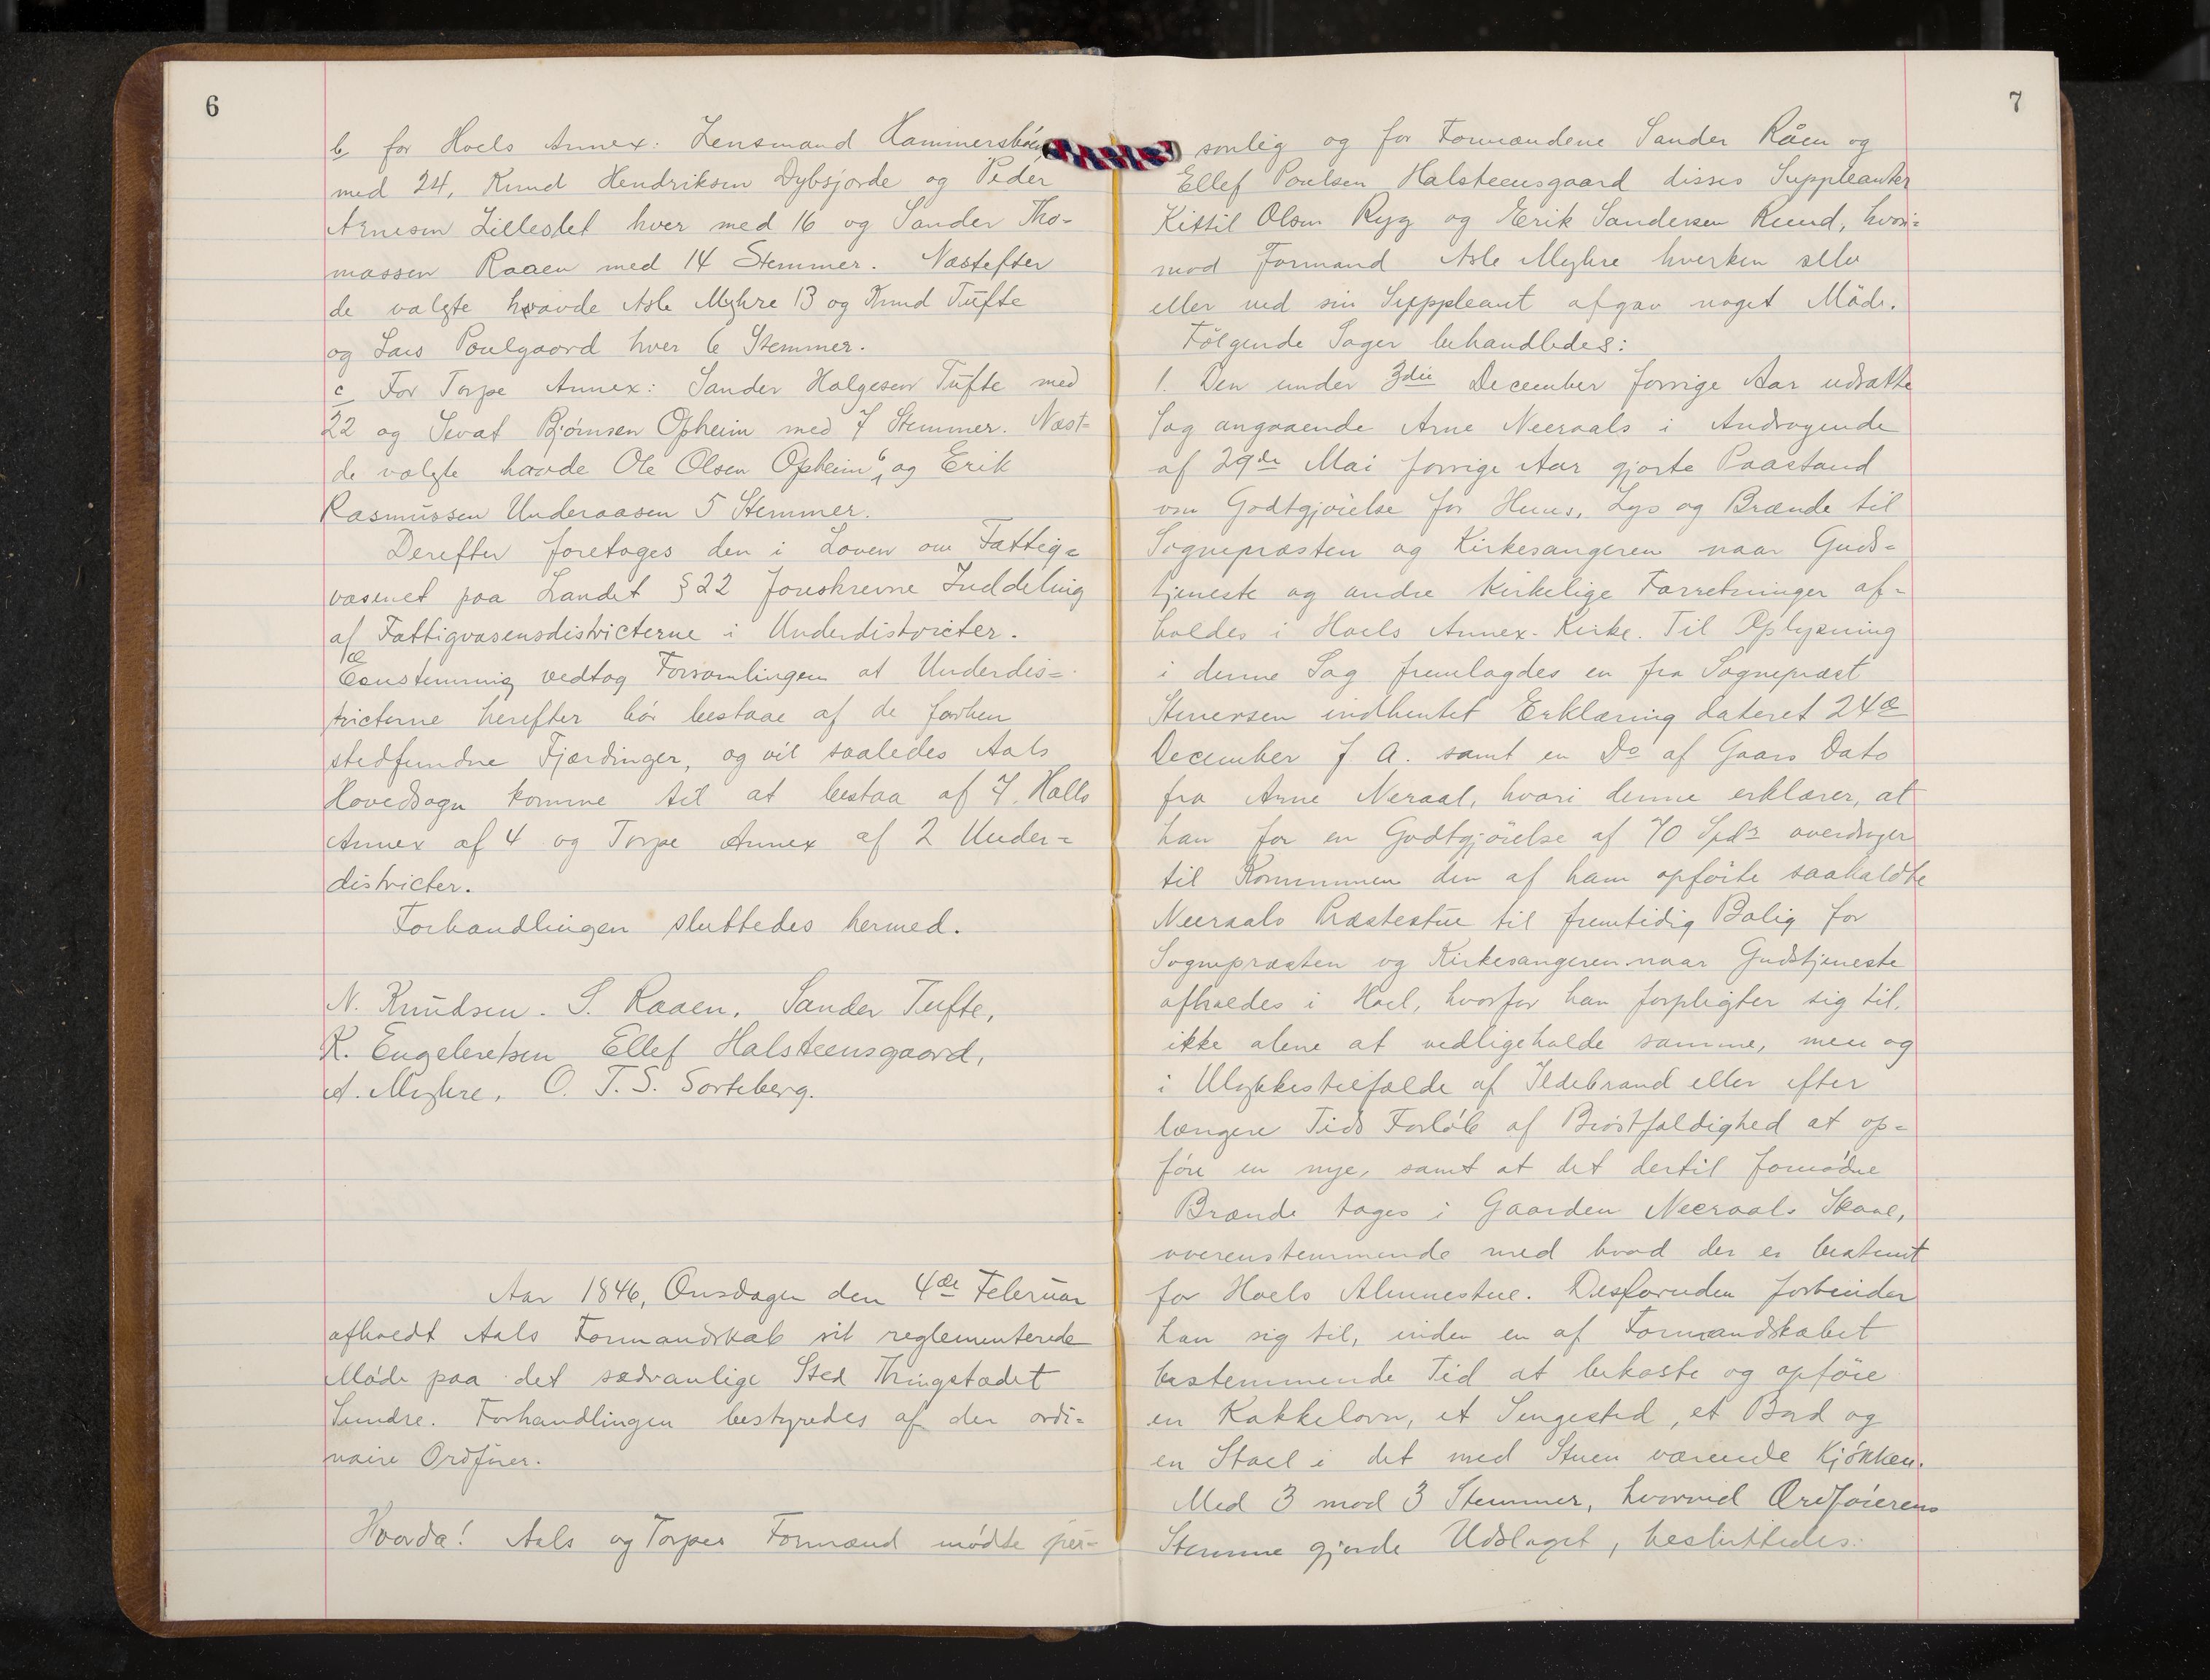 6
b for Hoels Annex: Lensmand Hammersbøen
med 24, Knud Hendriksen Dybsjorde og Peder
Arnesen Lilleslet hver med 16 og Sander Tho-
massen Raaen med 14 Stemmer. Næstefter
de valgte havde Asle Myhre 13 og Knud Tufte
og Lars Poulgaard hver 6 Stemmer.
c For Torpe Annex: Sander Halgesen Tufte med
22 og Sevat Bjørnsen Opheim med 7 Stemmer. Næst-
de valgte havde Ole Olsen Opheim 6, og Erik
Rasmussen Underaasen 5 Stemmer.
Derefter foretages den i Loven om Fattig=
væsenet paa Landet § 22 foreskrevne Inddeling
af Fattigvæsensdistricterne i Underdistricter.
Eenstemmig vedtog Forsamlingen at Underdis=
tricterne herefter bør bestaae af de forhen
stedfundne Fjerdinger, og vil saaledes Aals
Hovedsogn komme til at bestaa af 7, Holls
Annex af 4 og Torpe Annex af 2 Under=
districter.
Forhandlingen sluttedes hermed.
N. Knudsen. S. Raaen. Sander Tufte,
K. Engebretsen Ellef Halsteensgaard,
A. Myhre, O. T. S. Sorteberg.
Aar 1846, Onsdagen den 4de Februar
afholdt Aals Formandskab sit reglementerede
Møde paa det sædvanlige Sted Thingstædet
Sundre. Forhandlingen bestyredes af den ordi=
naire Ordfører.
Hvorda! Aals og Torpes Formænd mødte per-
7
sonlig og for Formændene Sander Råen og
Ellef Poulsen Halsteensgaard disses Suppleanter
Kittil Olsen Ryg og Erik Sandersen Ruud, hvori=
mod Formand Asle Myhre hverken selv
eller ved sin Suppleant afgav noget Møde.
Følgende Sager behandledes:
1. Den under 3die December forrige Aar udsatte
Sag angaaende Arne Neeraals i Andragende
af 29de Mai forrige Aar gjorte Paastand
om Godtgjørelse for Huus, Lys og Brænde til
Sognepræsten og Kirkesangeren naar Guds=
tjeneste og andre kirkelige Forretninger af-
holdes i Hoels Annex-Kirke. Til Oplysning
i denne Sag fremlagdes en fra Sognepræst
Stenersen indhentet Erklæring dateret 24de
December f. A. samt en Do af Gaars Dato
fra Arne Neraal, hvori denne erklærer, at
han for en Godtgjørelse af 70 Spdr overdrager
til Kommunen den af ham opførte saakaldte
Neeraals Præstestue til fremtidig Bolig for
Sognepræsten og Kirkesangeren naar Gudstjeneste
afholdes i Hoel, hvorfor han forpligter sig til,
ikke alene at vedligeholde samme, men og
i Ulykkestilfælde af Ildebrand eller efter
længere Tids Forløb af Brøstfældighed at op=
føre en nye, samt at det dertil fornødne
Brænde tages i Gaarden Neeraals Skove,
overensstemmende med hvad der er bestemt
for Hoels Almuestue. Desforuden forbinder
han sig til, inden en af Formandskabet
bestemmende Tid at bekoste og opføre
en Kakkelovn, et Sengested, et Bord og
en Stoel i det med Stuen værende Kjøkken.
Med 3 mod 3 Stemmer, hvorved Ordføierens
Stemme gjorde Udslaget, besluttedes: